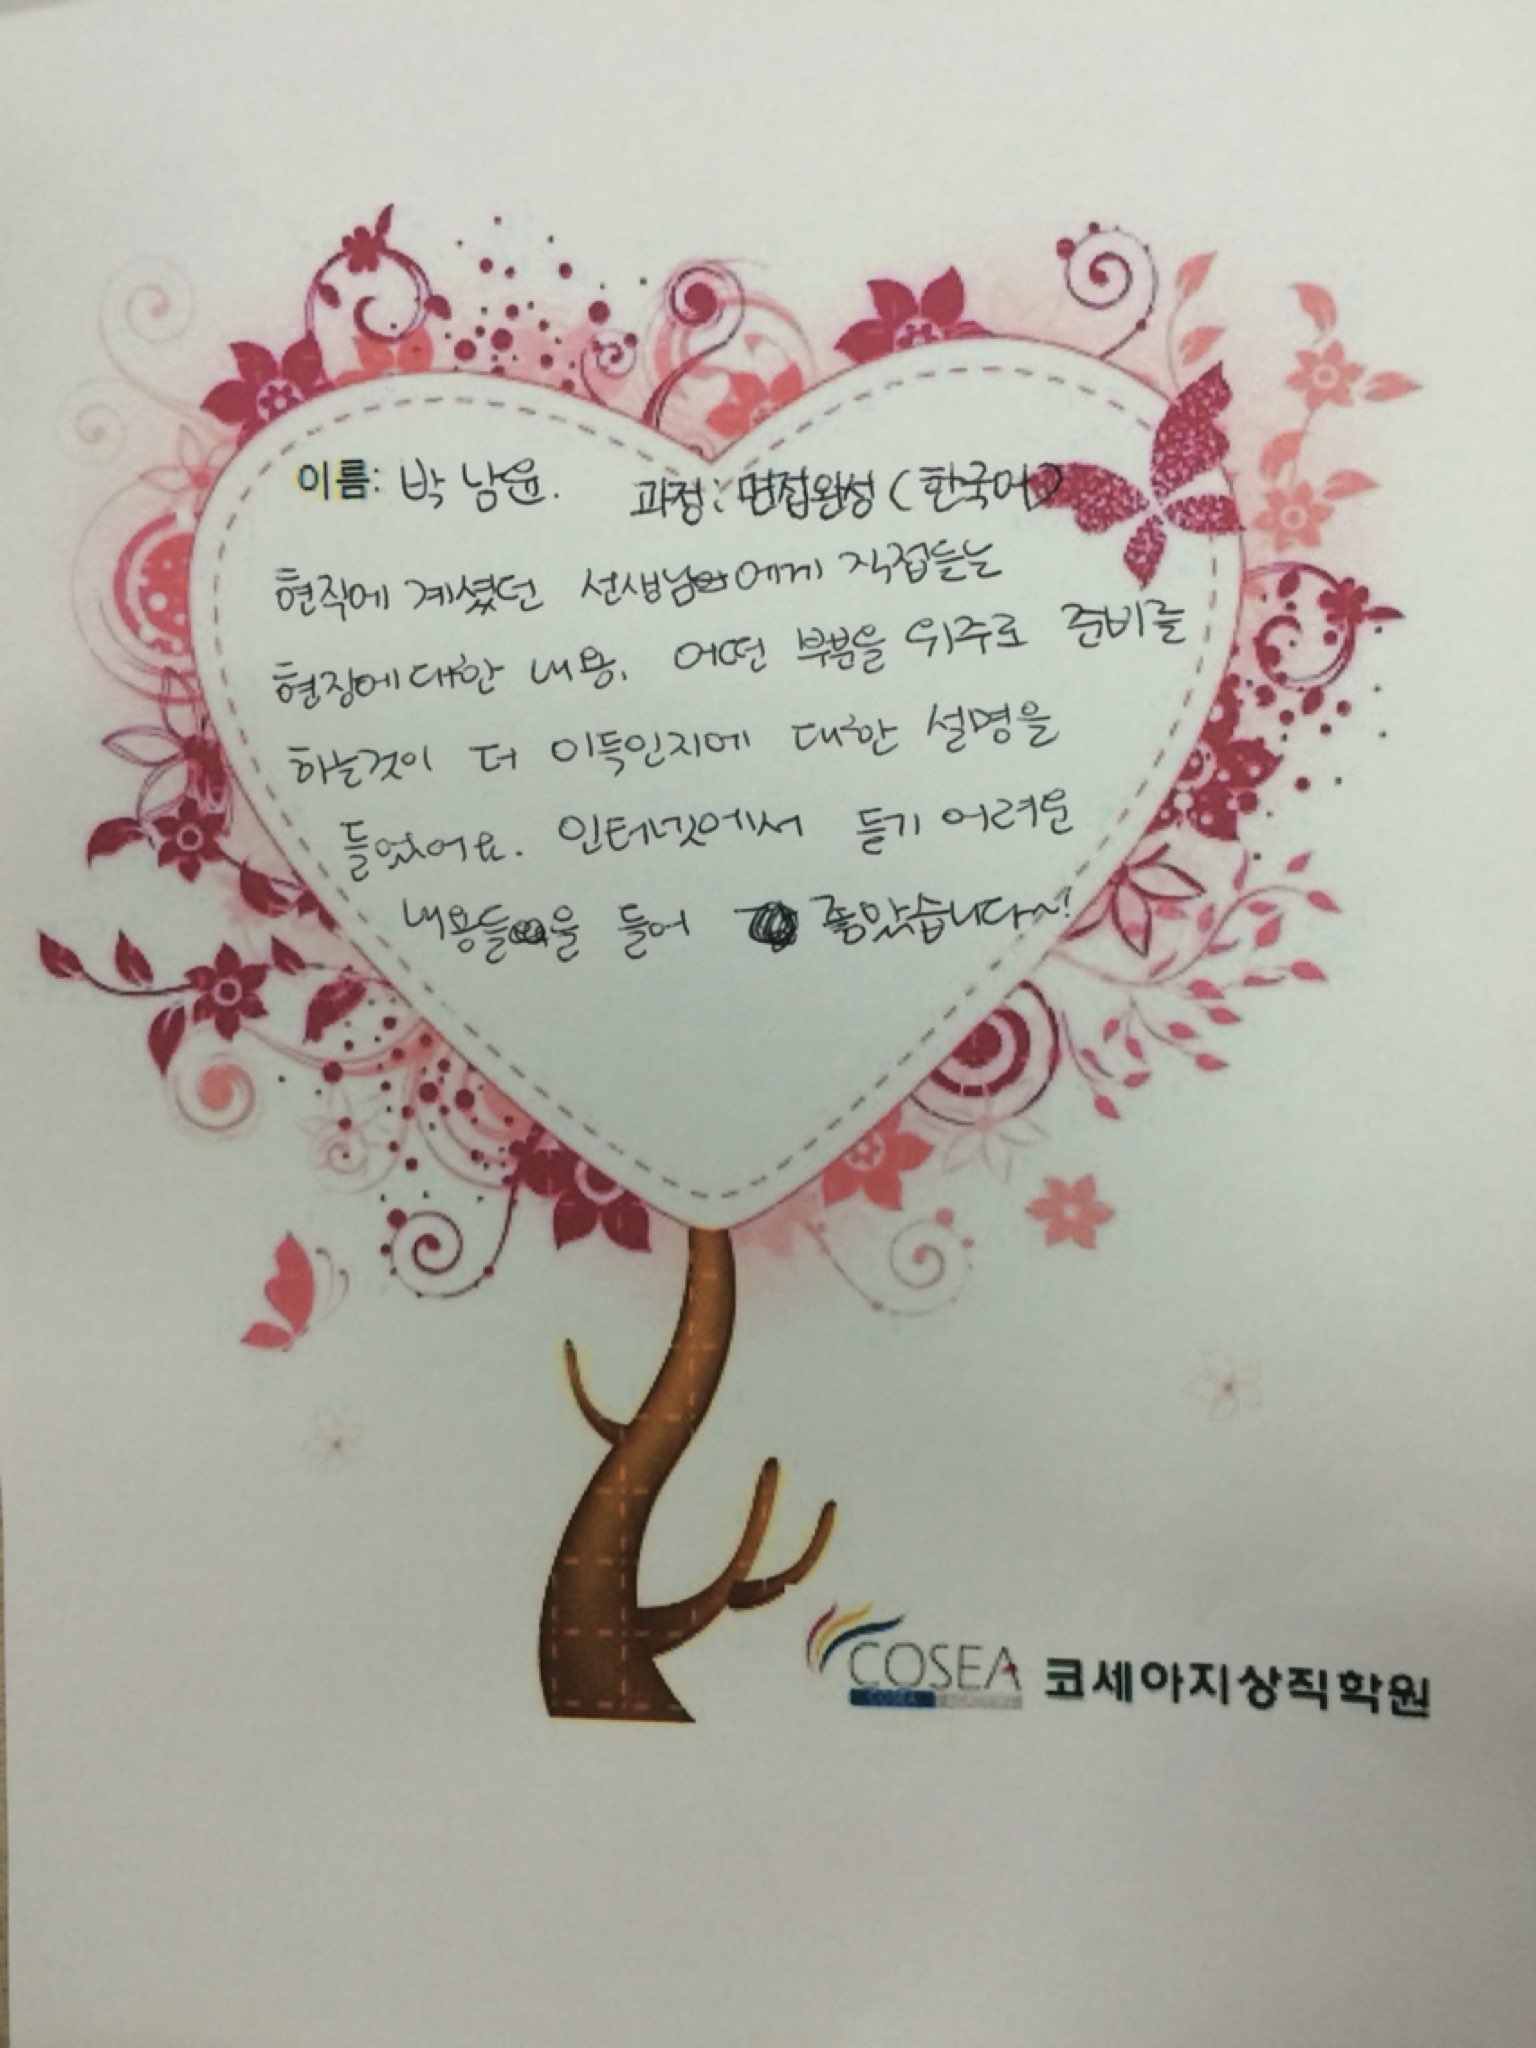 이름: 박남윤. 과정: 면접완성 (한국어)
현직에 계셨던 선생님에게 직접듣는
현장에대한 내용, 어떤 부분을 위주로 준비를
하는것이 더 이득인지에 대한 설명을
들었어요. 인터넷에서 듣기 어려운
내용들을 들어 좋았습니다~!
COSEA 코세아지상직학원
COSEA